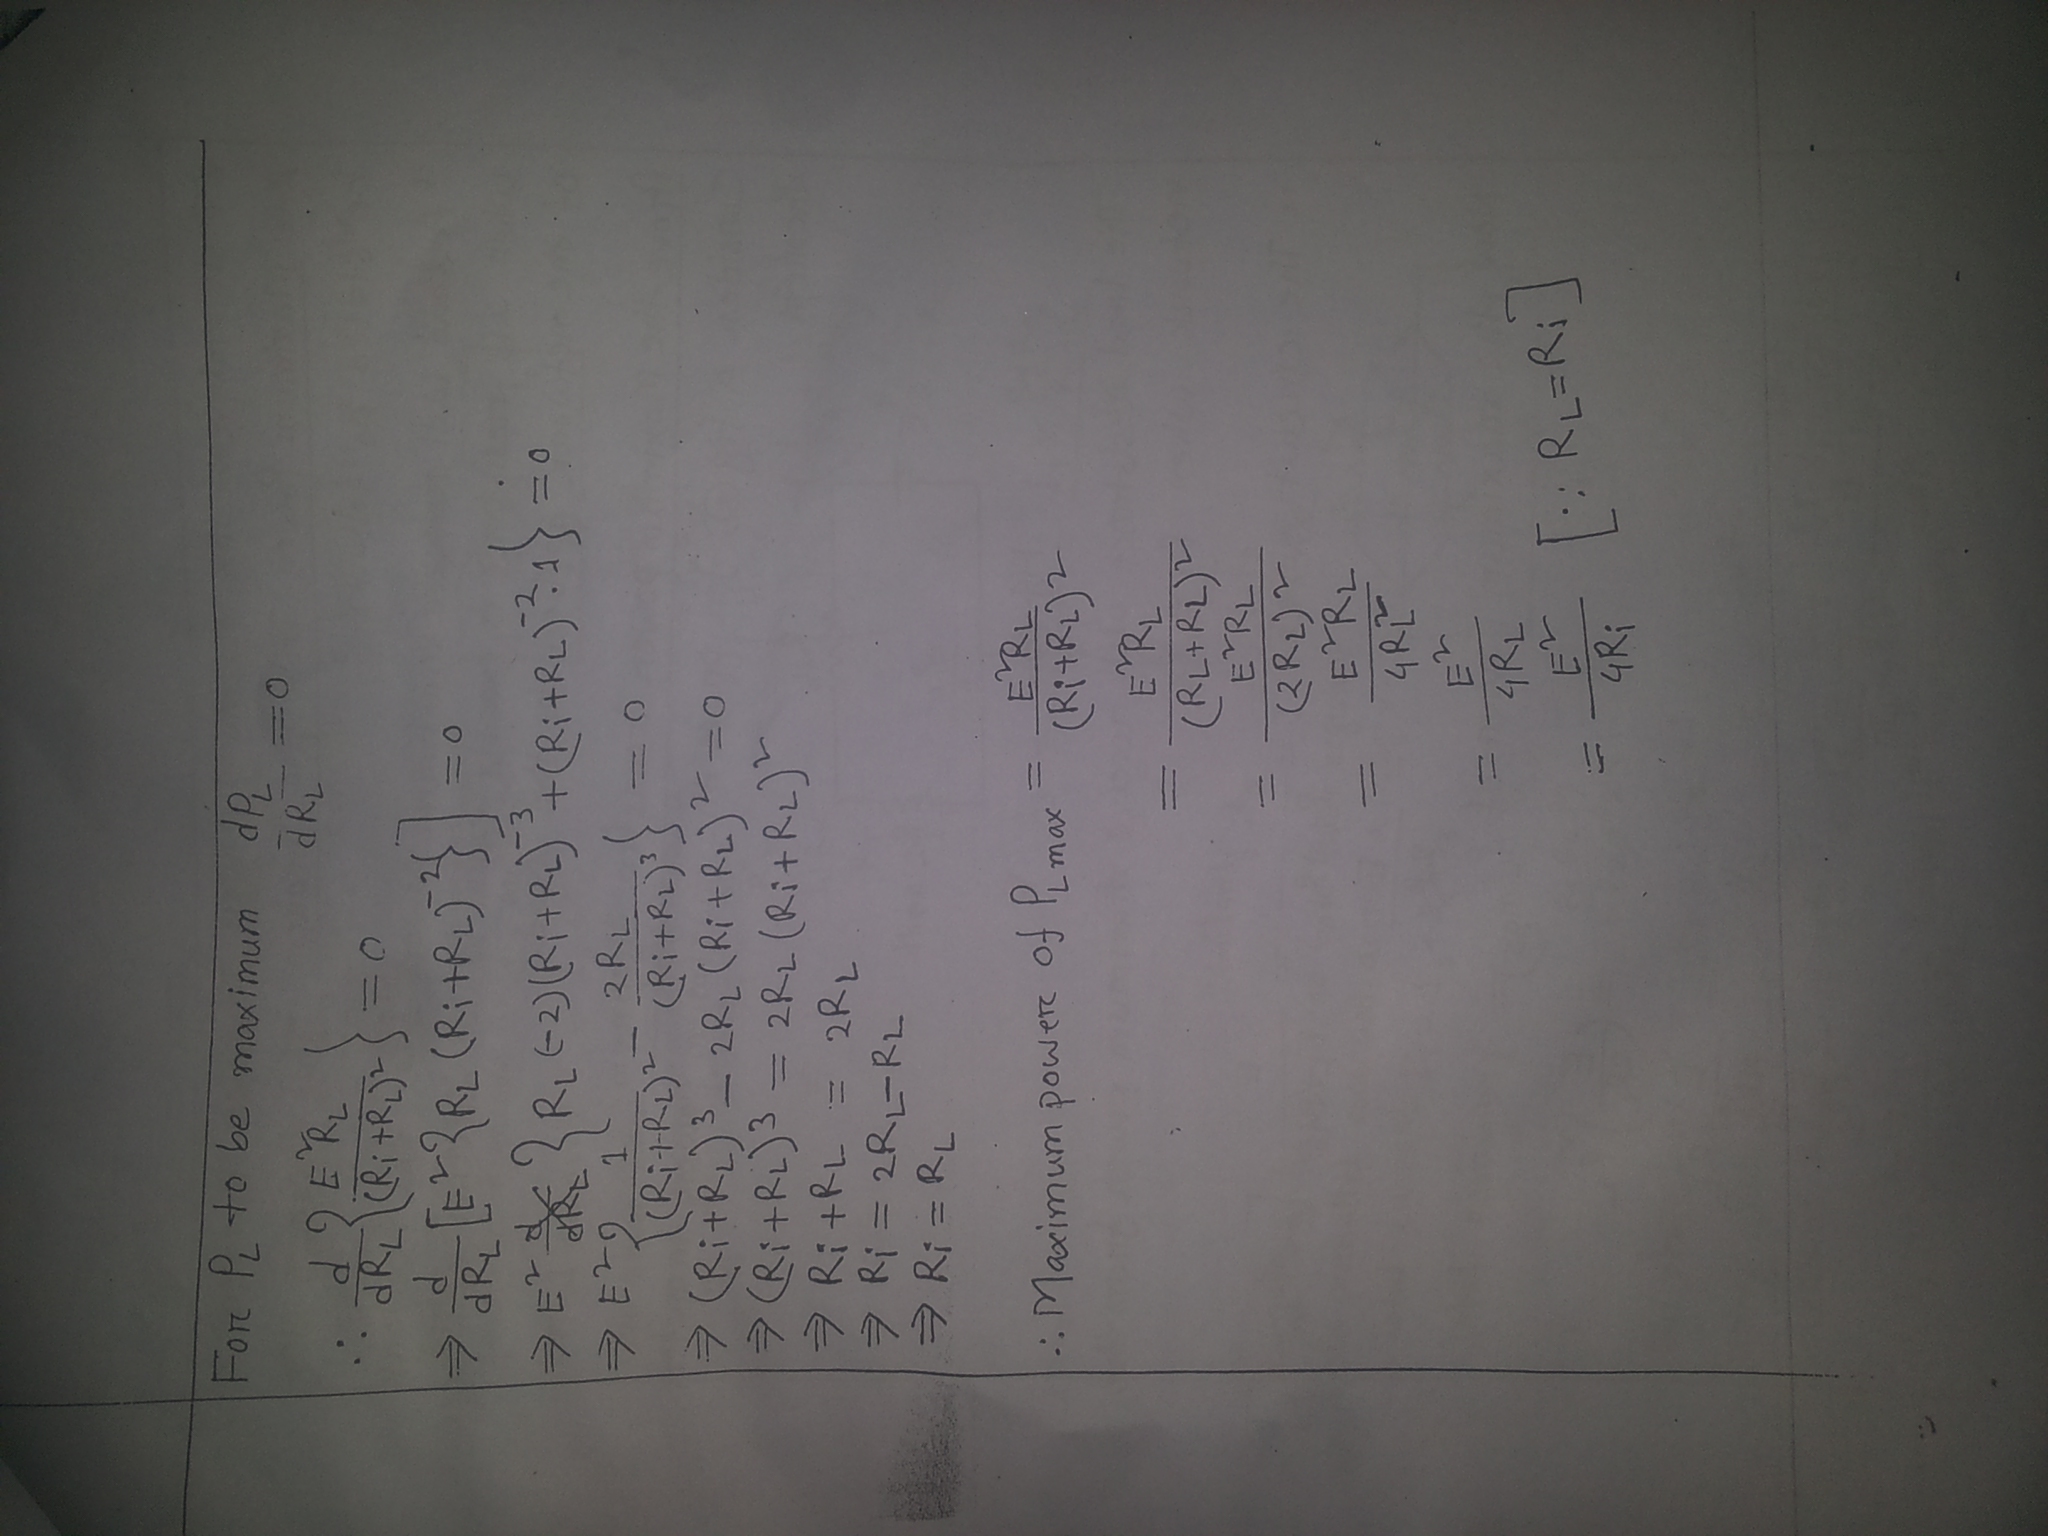 For P_L to be maximum dP_L/dR_L = 0
∴ d/dR_L {E²R_L/(Ri+R_L)²} = 0
⇒ d/dR_L [E²{R_L (Ri+R_L)⁻²}] = 0
⇒ E² {R_L (-2)(Ri+R_L)⁻³ + (Ri+R_L)⁻².1} = 0
⇒ E² {1/(Ri+R_L)² - 2R_L/(Ri+R_L)³} = 0
⇒ (Ri+R_L)³ - 2R_L (Ri+R_L)² = 0
⇒ (Ri+R_L)³ = 2R_L (Ri+R_L)²
⇒ Ri+R_L = 2R_L
⇒ Ri = 2R_L-R_L
⇒ Ri = R_L
∴ Maximum power of P_L max = E²R_L/(Ri+R_L)²
= E²R_L/(R_L+R_L)²
= E²R_L/(2R_L)²
= E²R_L/4R_L²
= E²/4R_L
= E²/4Ri [∵ R_L=Ri]